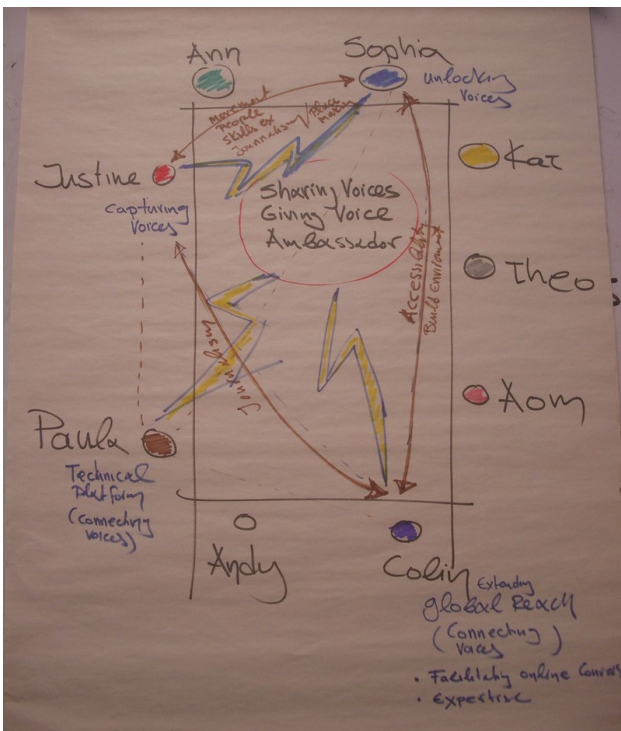 Ann
Sophia
Unlocking
Voices
Movement
People
Skills ex
Journalism/Place
Making
Justine
Capturing
Voices
Kat
Sharing Voices
Giving Voice
Ambassador
Theo
Accessibility
Build Enviroment
Journalism
Aom
Paula
Technical
Platform
(Connecting
Voices)
Andy
Colin
Extending
global Reach
(Connecting
Voices)
• Facilitating online Convers
• Expertise